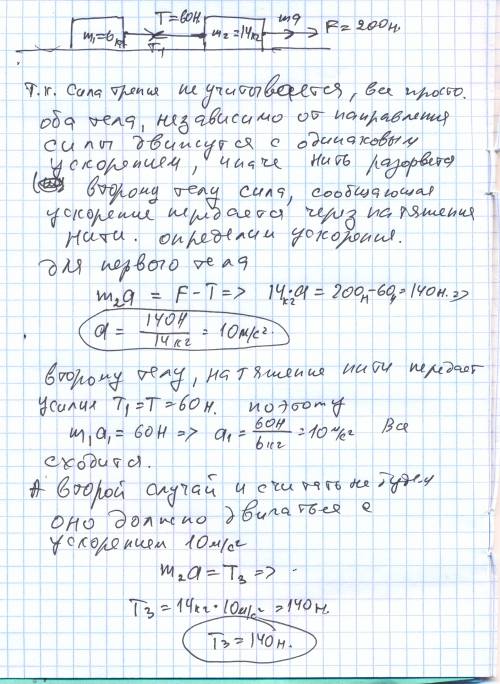 m₁=6кг T=60Н T₁ m₂=14кг ma F=200н.
Т.к. Сила трения не учитывается, все просто.
оба тела, независимо от направления
силы движутся с одинаковым
ускорением, иначе нить разорвется
второму телу сила, сообщающая
ускорение передается через натяжения
нити. определим ускорения.
для первого тела
m₂a = F-T => 14кг·a = 200н-60н=140н. =>
a = 140Н/14кг = 10м/с².
второму телу, натяжение нити передает
усилия T₁=T=60н. поэтому
m₁a₁ = 60Н => a₁ = 60Н/6кг = 10м/с² Все
сходится.
А второй случай и считать не будем
оно должно двигаться с
ускорением 10м/с²
m₂a = T₃ =>
T₃ = 14кг·10м/с² = 140н.
T₃ = 140н.